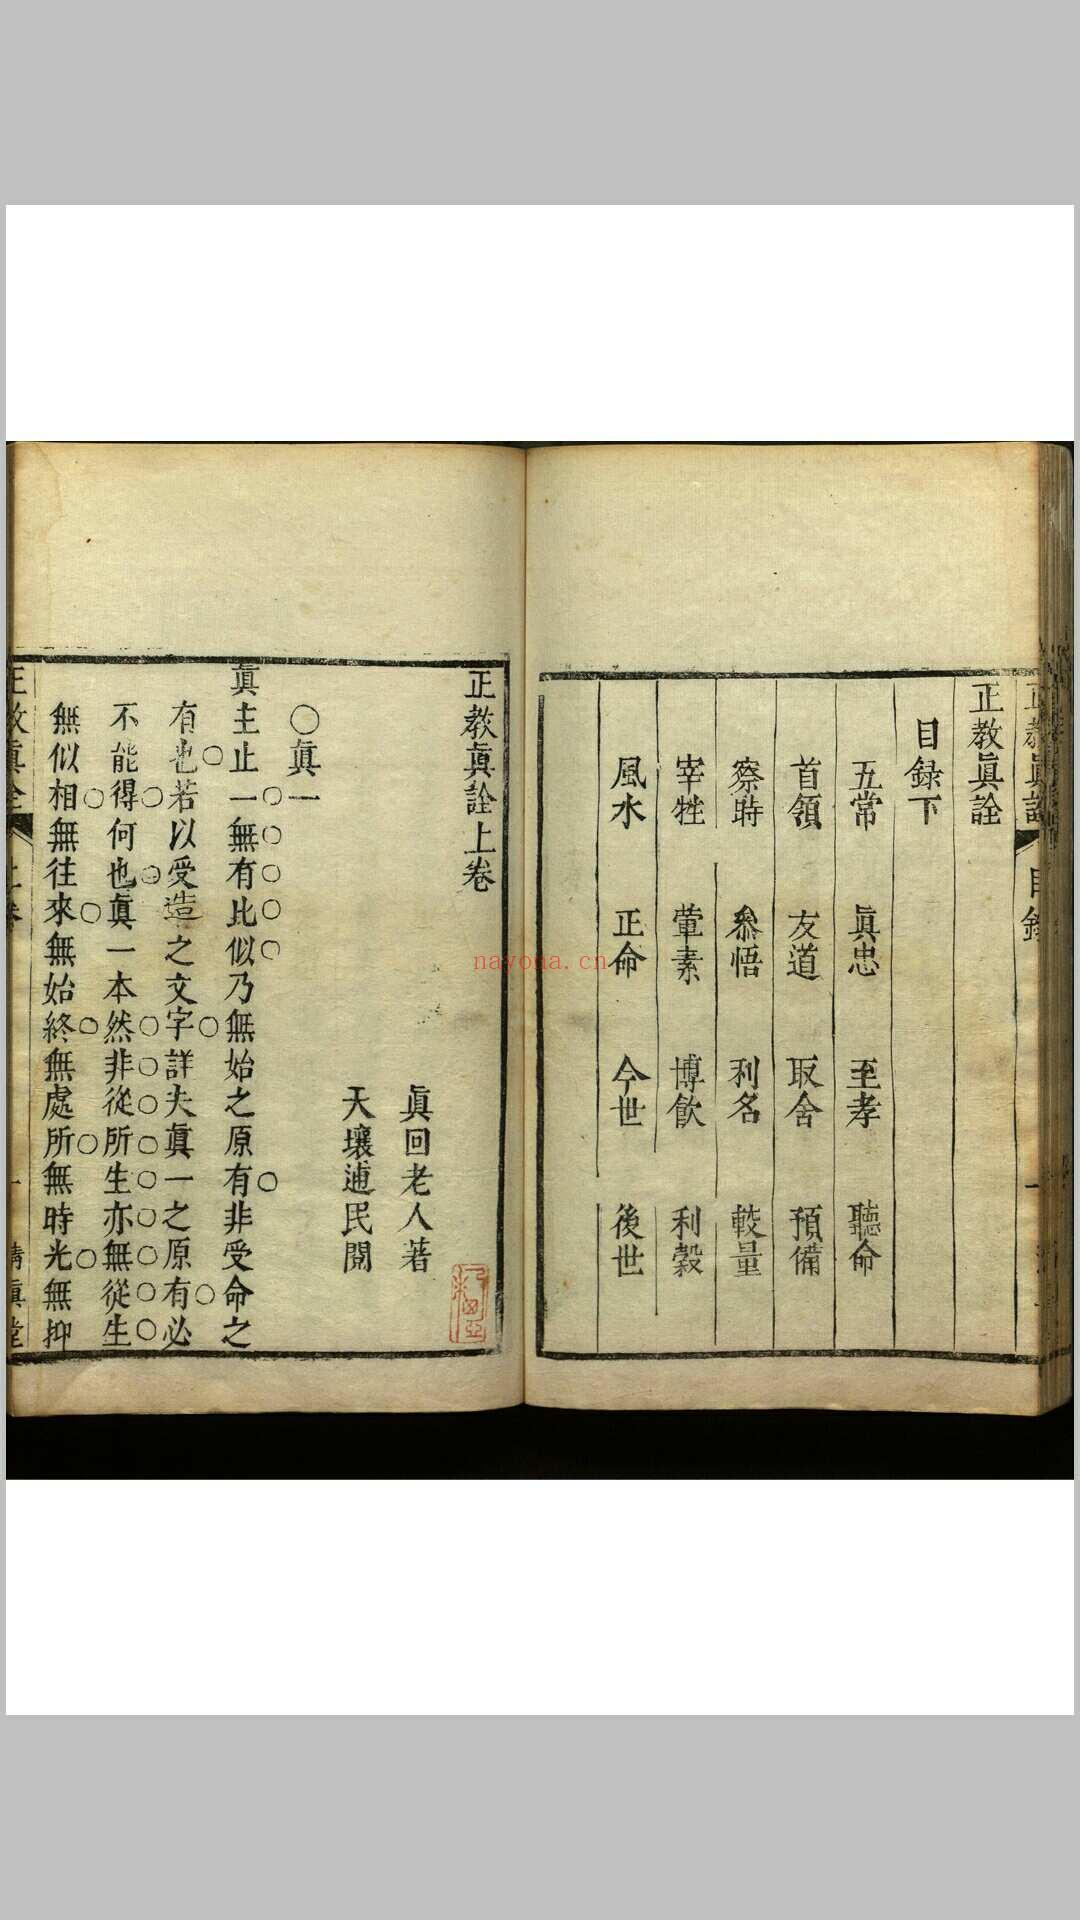 正教眞詮
目録下
五常 眞忠 至孝 聽命
首領 友道 取舍 預備
察時 叅悟 利名 較量
宰牲 葷素 博飲 利穀
風水 正命 今世 後世
正教眞詮上卷
眞回老人著
天壤逋民閱
○眞一
眞主止一無有比似乃無始之原有非受命之
有也若以受造之文字詳夫眞一之原有必
不能得何也眞一本然非從所生亦無從生
無似相無往來無始終無處所無時光無抑
nayona.cn